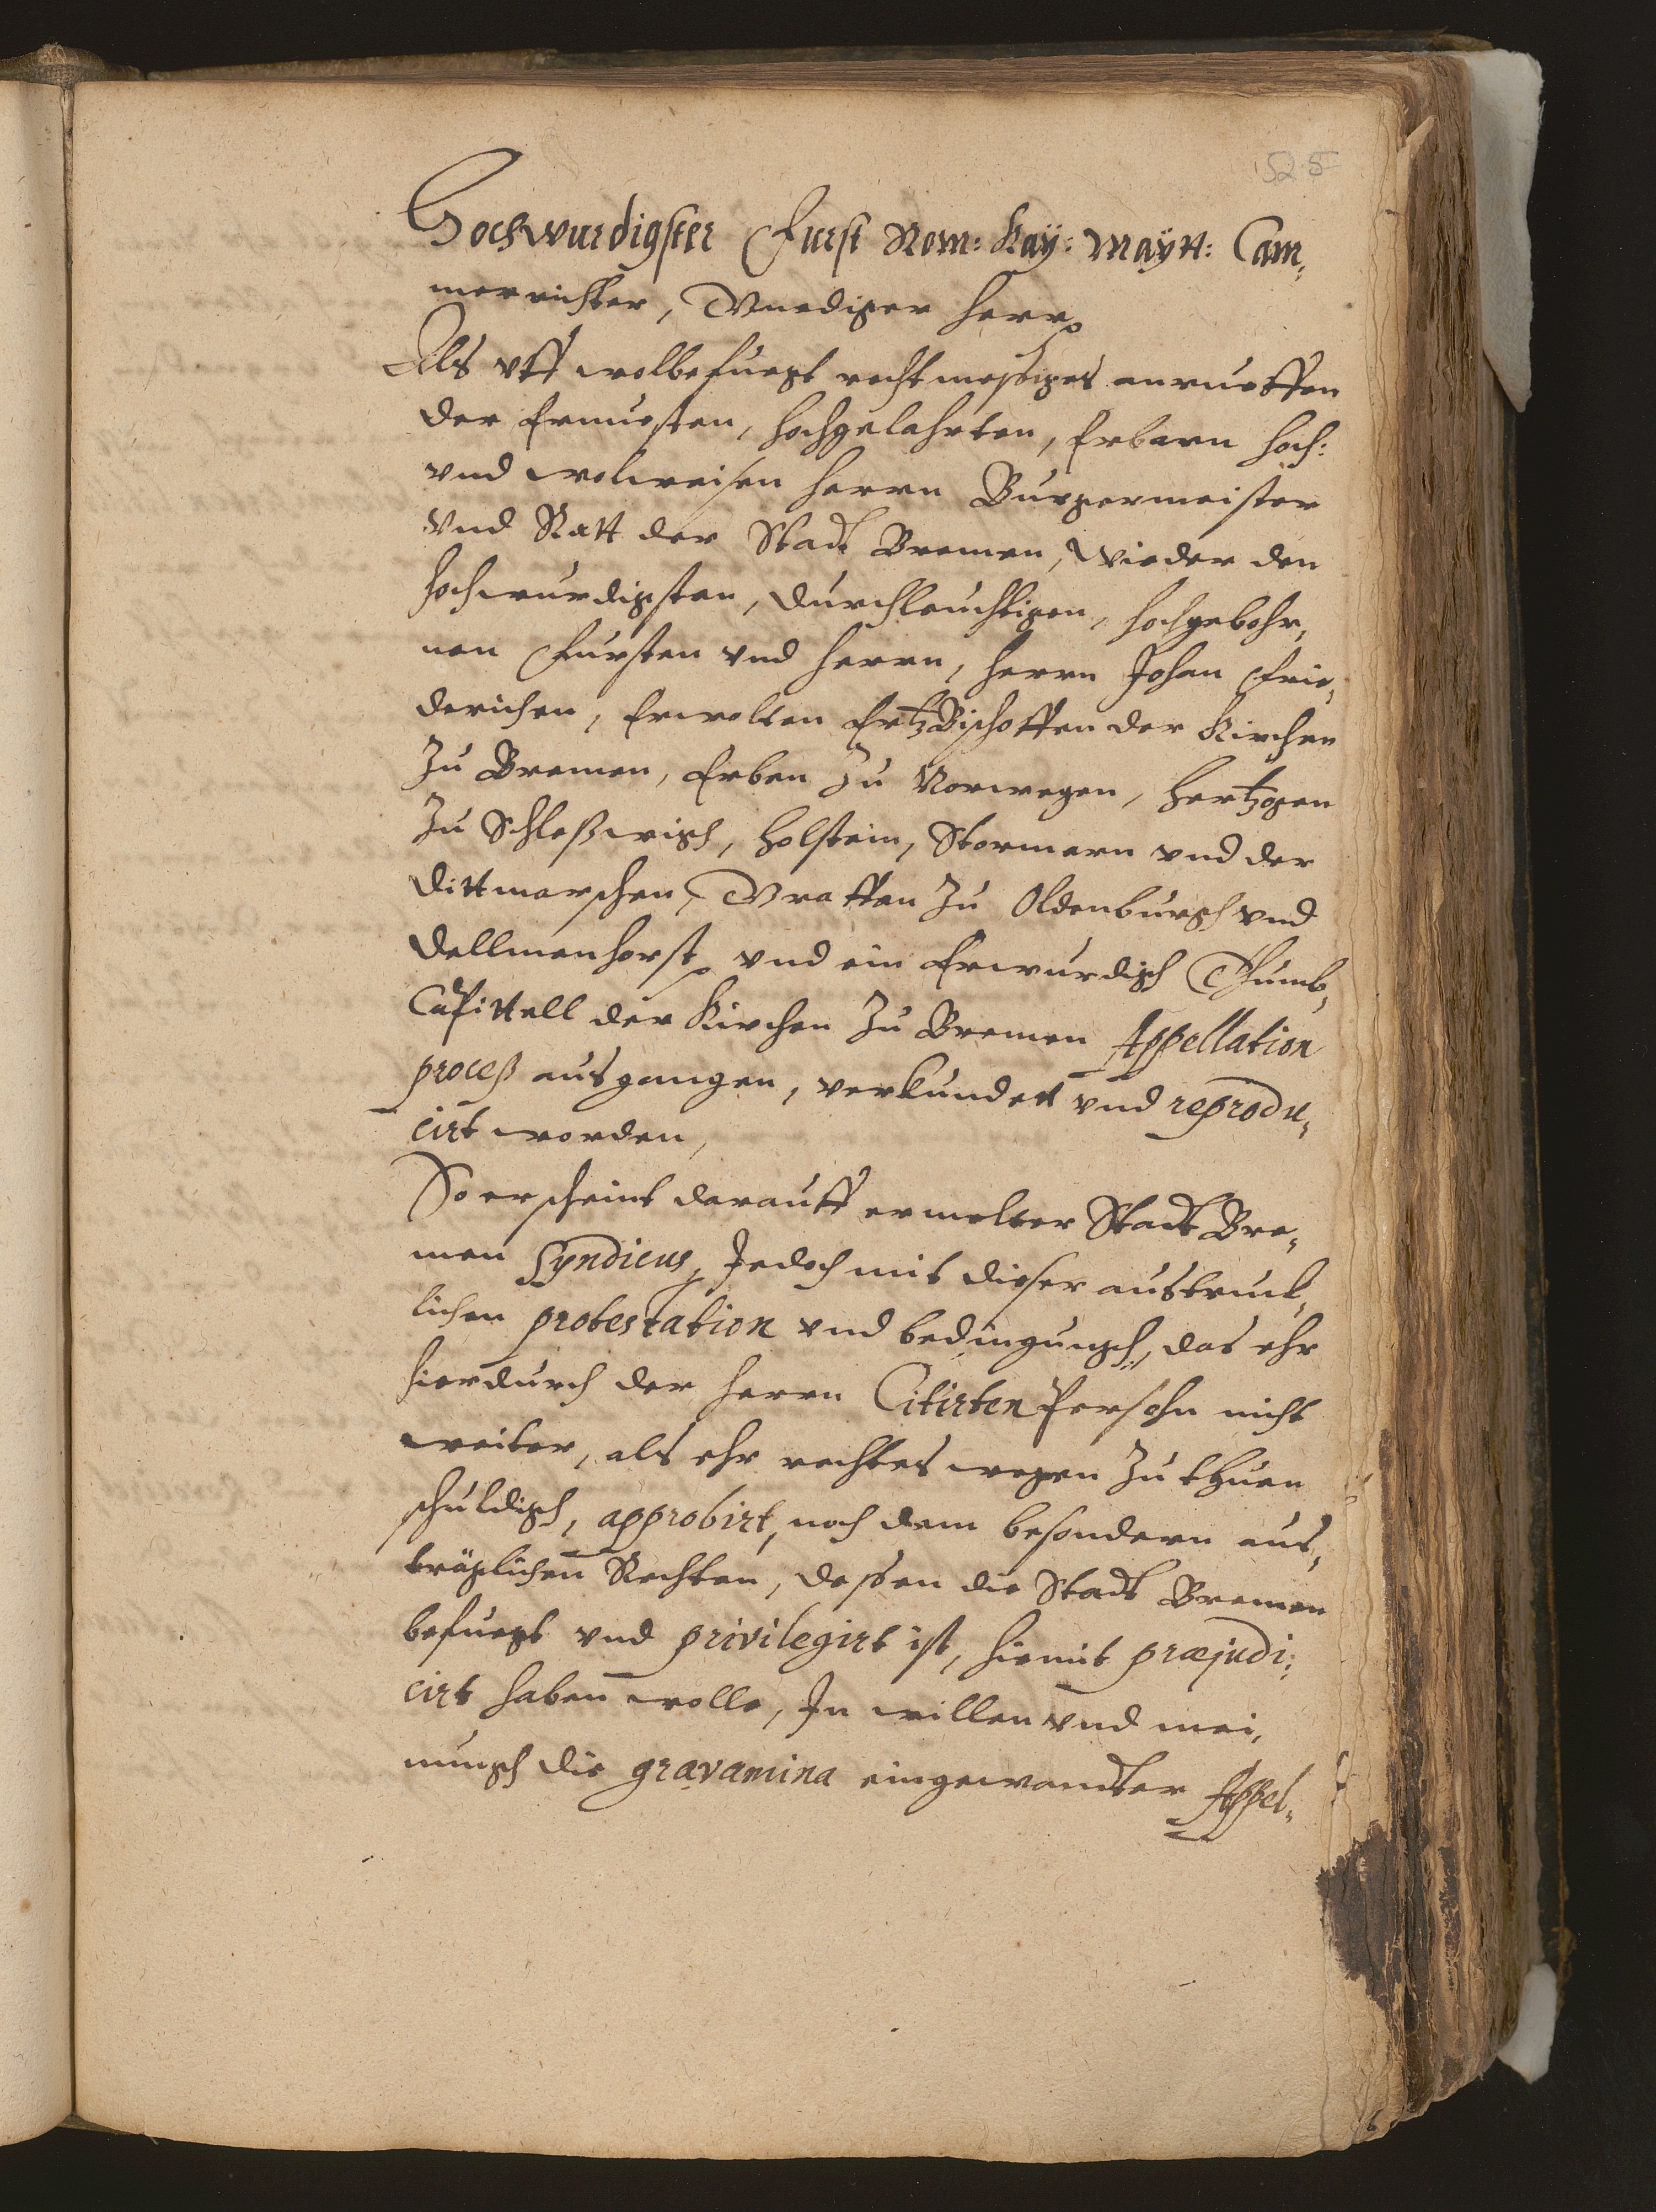 525
Hochwurdigster Furst Rom: Kaÿ: Maÿtt: Cam„
merrichter, Gnediger Herr,
Als vff wolbefuegt rechtmessiges anrueffen
der Ernuesten, Hochgelahrten, Erbarn Hoch:
vnd wolweisen Herrn Burgermeister
vnd Ratt der Stadt Bremen, wieder den
Hochwurdigsten, Durchleuchtigen, Hochgebohr„
nen Fursten vnd Herrn, Herrn Johan Frie„
derichen, Erwolten ErtzBischoffen der Kirchen
zu Bremen, Erben zu Norwegen, Hertzogen
zu Schleßwigh, Holstein, Stormarn vnd der
Dittmarschen, Graffen zu Oldenburgh vnd
Dellmenhorst, vnd ein Erwurdigh Thumb„
Capittell der Kirchen zu Bremen Appellation
proceß ausgangen, verkundett vnd reprodu„
cirt worden,
So erscheint darauff ermelter Stadt Bre„
men Syndicus, Jedoch mit dieser austruck„
lichen protestation vnd bedingungh, das ehr
hierdurch der Herrn Citirten Persohn nicht
weiter, als ehr rechtes wegen zu thuen
schuldigh, approbirt, noch dem besondern aus„
träglichen Rechten, dessen die Stadt Bremen
befuegt vnd privilegirt ist, hiemit præjudi„
cirt haben wolle, In willen vnd mei„
nungh die gravamina eingewandter Appel„